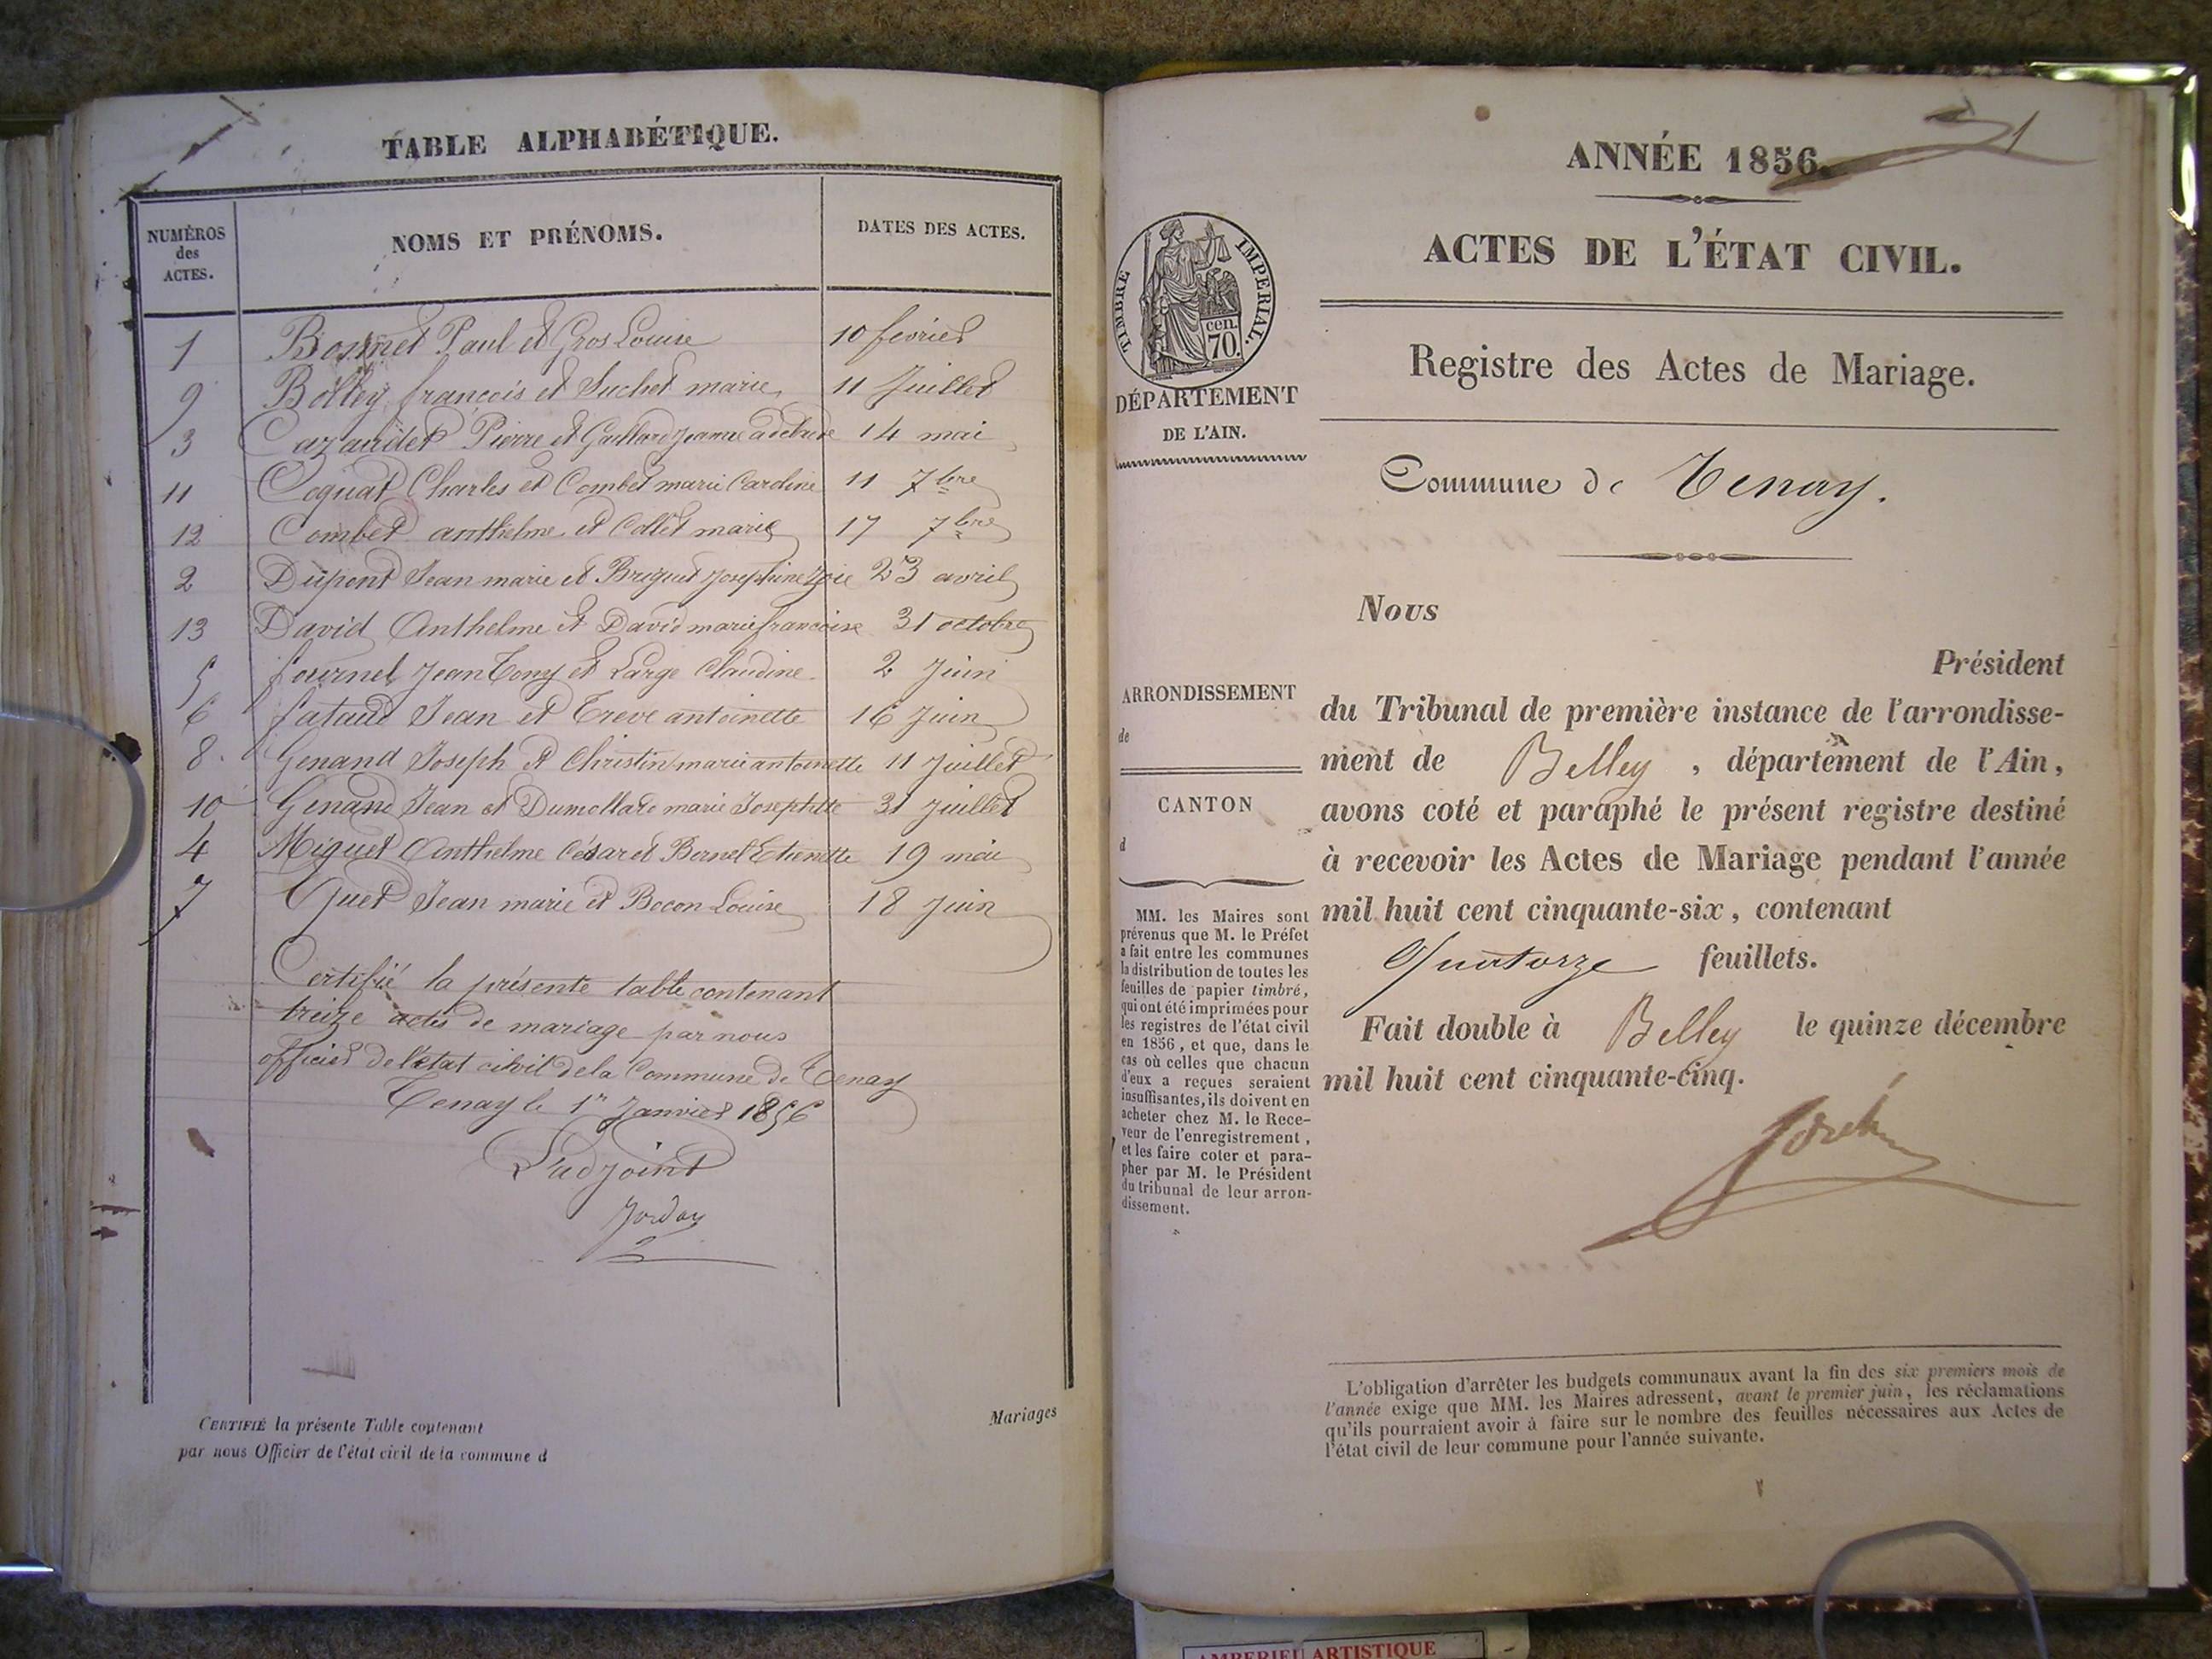 TABLE ALPHABÉTIQUE.
NUMÉROS des ACTES. NOMS ET PRÉNOMS. DATES DES ACTES.
1 Bonnet Paul et Gros Louise 10 fevrier
9 Bolley françois et Suchet marie 11 Juillet
3 Cazaudet Pierre et Gaillard Jeanne 14 mai
11 Coquat Charles et Combet marie Caroline 11 7bre
12 Combet anthelme et Collet marie 17 7bre
2 Dupont Jean marie et Briguet Josephine Zoie 23 avril
13 David Anthelme et David marie francoise 31 octobre
5 fournel Jean Tony et Large Claudine 2 Juin
6 fataud Jean et Treve antoinette 16 Juin
8 Genand Joseph et Christin marie antoinette 11 Juillet
10 Genand Jean et Dumollard marie Josephtte 31 Juillet
4 Miguet Anthelme César et Bernel Etienette 19 mai
7 Quet Jean marie et Bocon Louise 18 Juin
Certifié la présente table contenant
treize actes de mariage par nous
officier de l'état civil de la Commune de Tenay
Tenay le 1er Janvier 1856
L'adjoint
Jorday
CERTIFIÉ la présente Table contenant
par nous Officier de l'état civil de la commune d
Mariages
1
ANNÉE 1856.
ACTES DE L'ÉTAT CIVIL.
TIMBRE IMPÉRIAL.
cen.
70.
DÉPARTEMENT
DE L'AIN.
Registre des Actes de Mariage.
Commune de Tenay.
ARRONDISSEMENT
de
CANTON
d
MM. les Maires sont
prévenus que M. le Préfet
a fait entre les communes
la distribution de toutes les
feuilles de papier timbré,
qui ont été imprimées pour
les registres de l'état civil
en 1856, et que, dans le
cas où celles que chacun
d'eux a reçues seraient
insuffisantes, ils doivent en
acheter chez M. le Rece-
veur de l'enregistrement,
et les faire coter et para-
pher par M. le Président
du tribunal de leur arron-
dissement.
Nous
Président
du Tribunal de première instance de l'arrondisse-
ment de Belley, département de l'Ain,
avons coté et paraphé le présent registre destiné
à recevoir les Actes de Mariage pendant l'année
mil huit cent cinquante-six, contenant
Quatorze feuillets.
Fait double à Belley le quinze décembre
mil huit cent cinquante-cinq.
L'obligation d'arrêter les budgets communaux avant la fin des six premiers mois de
l'année exige que MM. les Maires adressent, avant le premier juin, les réclamations
qu'ils pourraient avoir à faire sur le nombre des feuilles nécessaires aux Actes de
l'état civil de leur commune pour l'année suivante.
AMBERIEU ARTISTIQUE